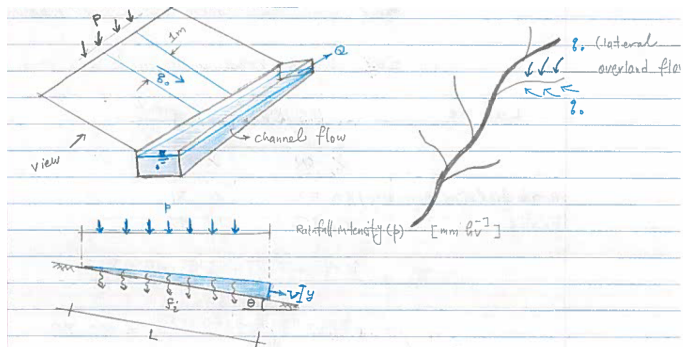 P
1m
Q
q₀
channel flow
view
q₀ (lateral
overland flo
q₀
P
Rainfall intensity (p) [mm hr⁻¹]
fᵢ
θ
v
y
L